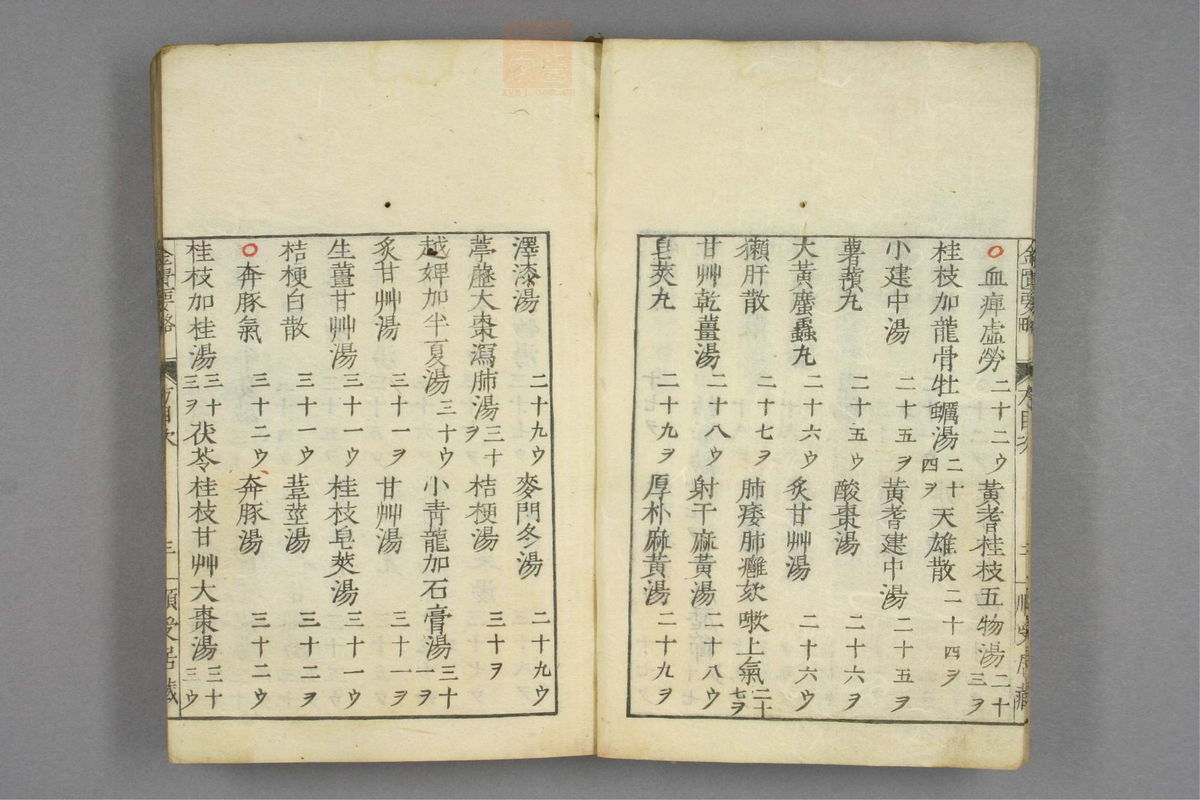 ○血痺虛勞 二十二ウ 黃耆桂枝五物湯 二十三ヲ
桂枝加龍骨牡蠣湯 二十四ヲ 天雄散 二十四ヲ
小建中湯 二十五ヲ 黃耆建中湯 二十五ヲ
薯蕷丸 二十五ウ 酸棗湯 二十六ヲ
大黃䗪蟲丸 二十六ウ 炙甘艸湯 二十六ウ
獺肝散 二十七ヲ 肺痿肺癰欬嗽上氣 二十七ヲ
甘艸乾薑湯 二十八ウ 射干麻黃湯 二十八ウ
皂莢丸 二十九ヲ 厚朴麻黃湯 二十九ヲ
金匱要略 方目次 三 順受居藏
澤漆湯 二十九ウ 麥門冬湯 二十九ウ
葶藶大棗瀉肺湯 三十ヲ 桔梗湯 三十ヲ
越婢加半夏湯 三十ウ 小靑龍加石膏湯 三十一ヲ
炙甘艸湯 三十一ヲ 甘艸湯 三十一ヲ
生薑甘艸湯 三十一ウ 桂枝皂莢湯 三十一ウ
桔梗白散 三十一ウ 葦莖湯 三十二ヲ
○奔豚氣 三十二ウ 奔豚湯 三十二ウ
桂枝加桂湯 三十三ヲ 茯苓桂枝甘艸大棗湯 三十三ウ
金匱要略 方目次 三 順受居藏